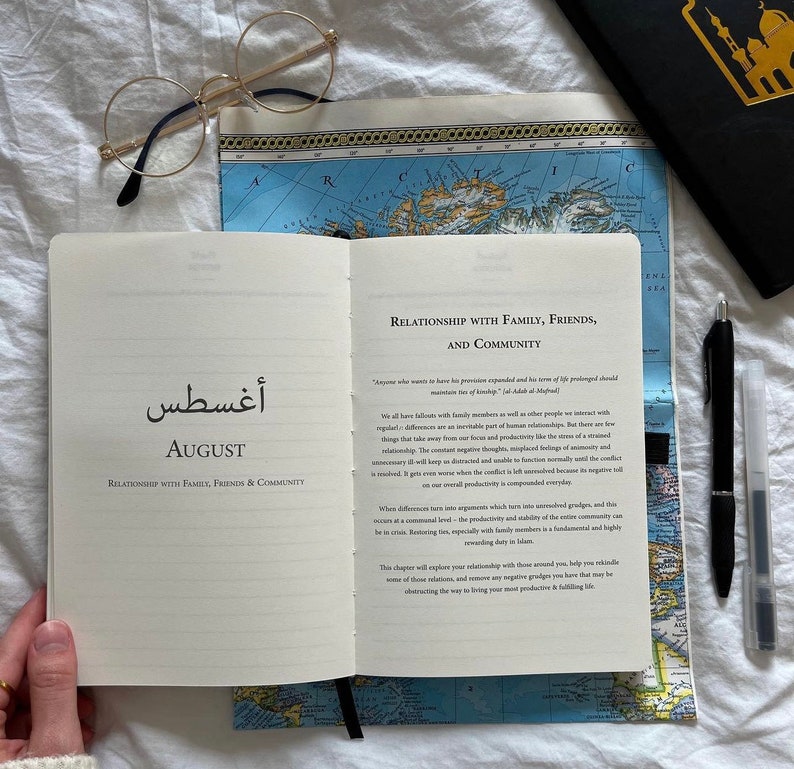 ARCTIC
QUEEN ELIZABETH ISLANDS
Longitude West of Greenwich
SEA
أغسطس
AUGUST
RELATIONSHIP WITH FAMILY, FRIENDS & COMMUNITY
RELATIONSHIP WITH FAMILY, FRIENDS,
AND COMMUNITY
"Anyone who wants to have his provision expanded and his term of life prolonged should
maintain ties of kinship." [al-Adab al-Mufrad]
We all have fallouts with family members as well as other people we interact with
regulae/: differences are an inevitable part of human relationships. But there are few
things that take away from our focus and productivity like the stress of a strained
relationship. The constant negative thoughts, misplaced feelings of animosity and
unnecessary ill-will keep us distracted and unable to function normally until the conflict
is resolved. It gets even worse when the conflict is left unresolved because its negative toll
on our overall productivity is compounded everyday.
When differences turn into arguments which turn into unresolved grudges, and this
occurs at a communal level – the productivity and stability of the entire community can
be in crisis. Restoring ties, especially with family members is a fundamental and highly
rewarding duty in Islam.
This chapter will explore your relationship with those around you, help you rekindle
some of those relations, and remove any negative grudges you have that may be
obstructing the way to living your most productive & fulfilling life.